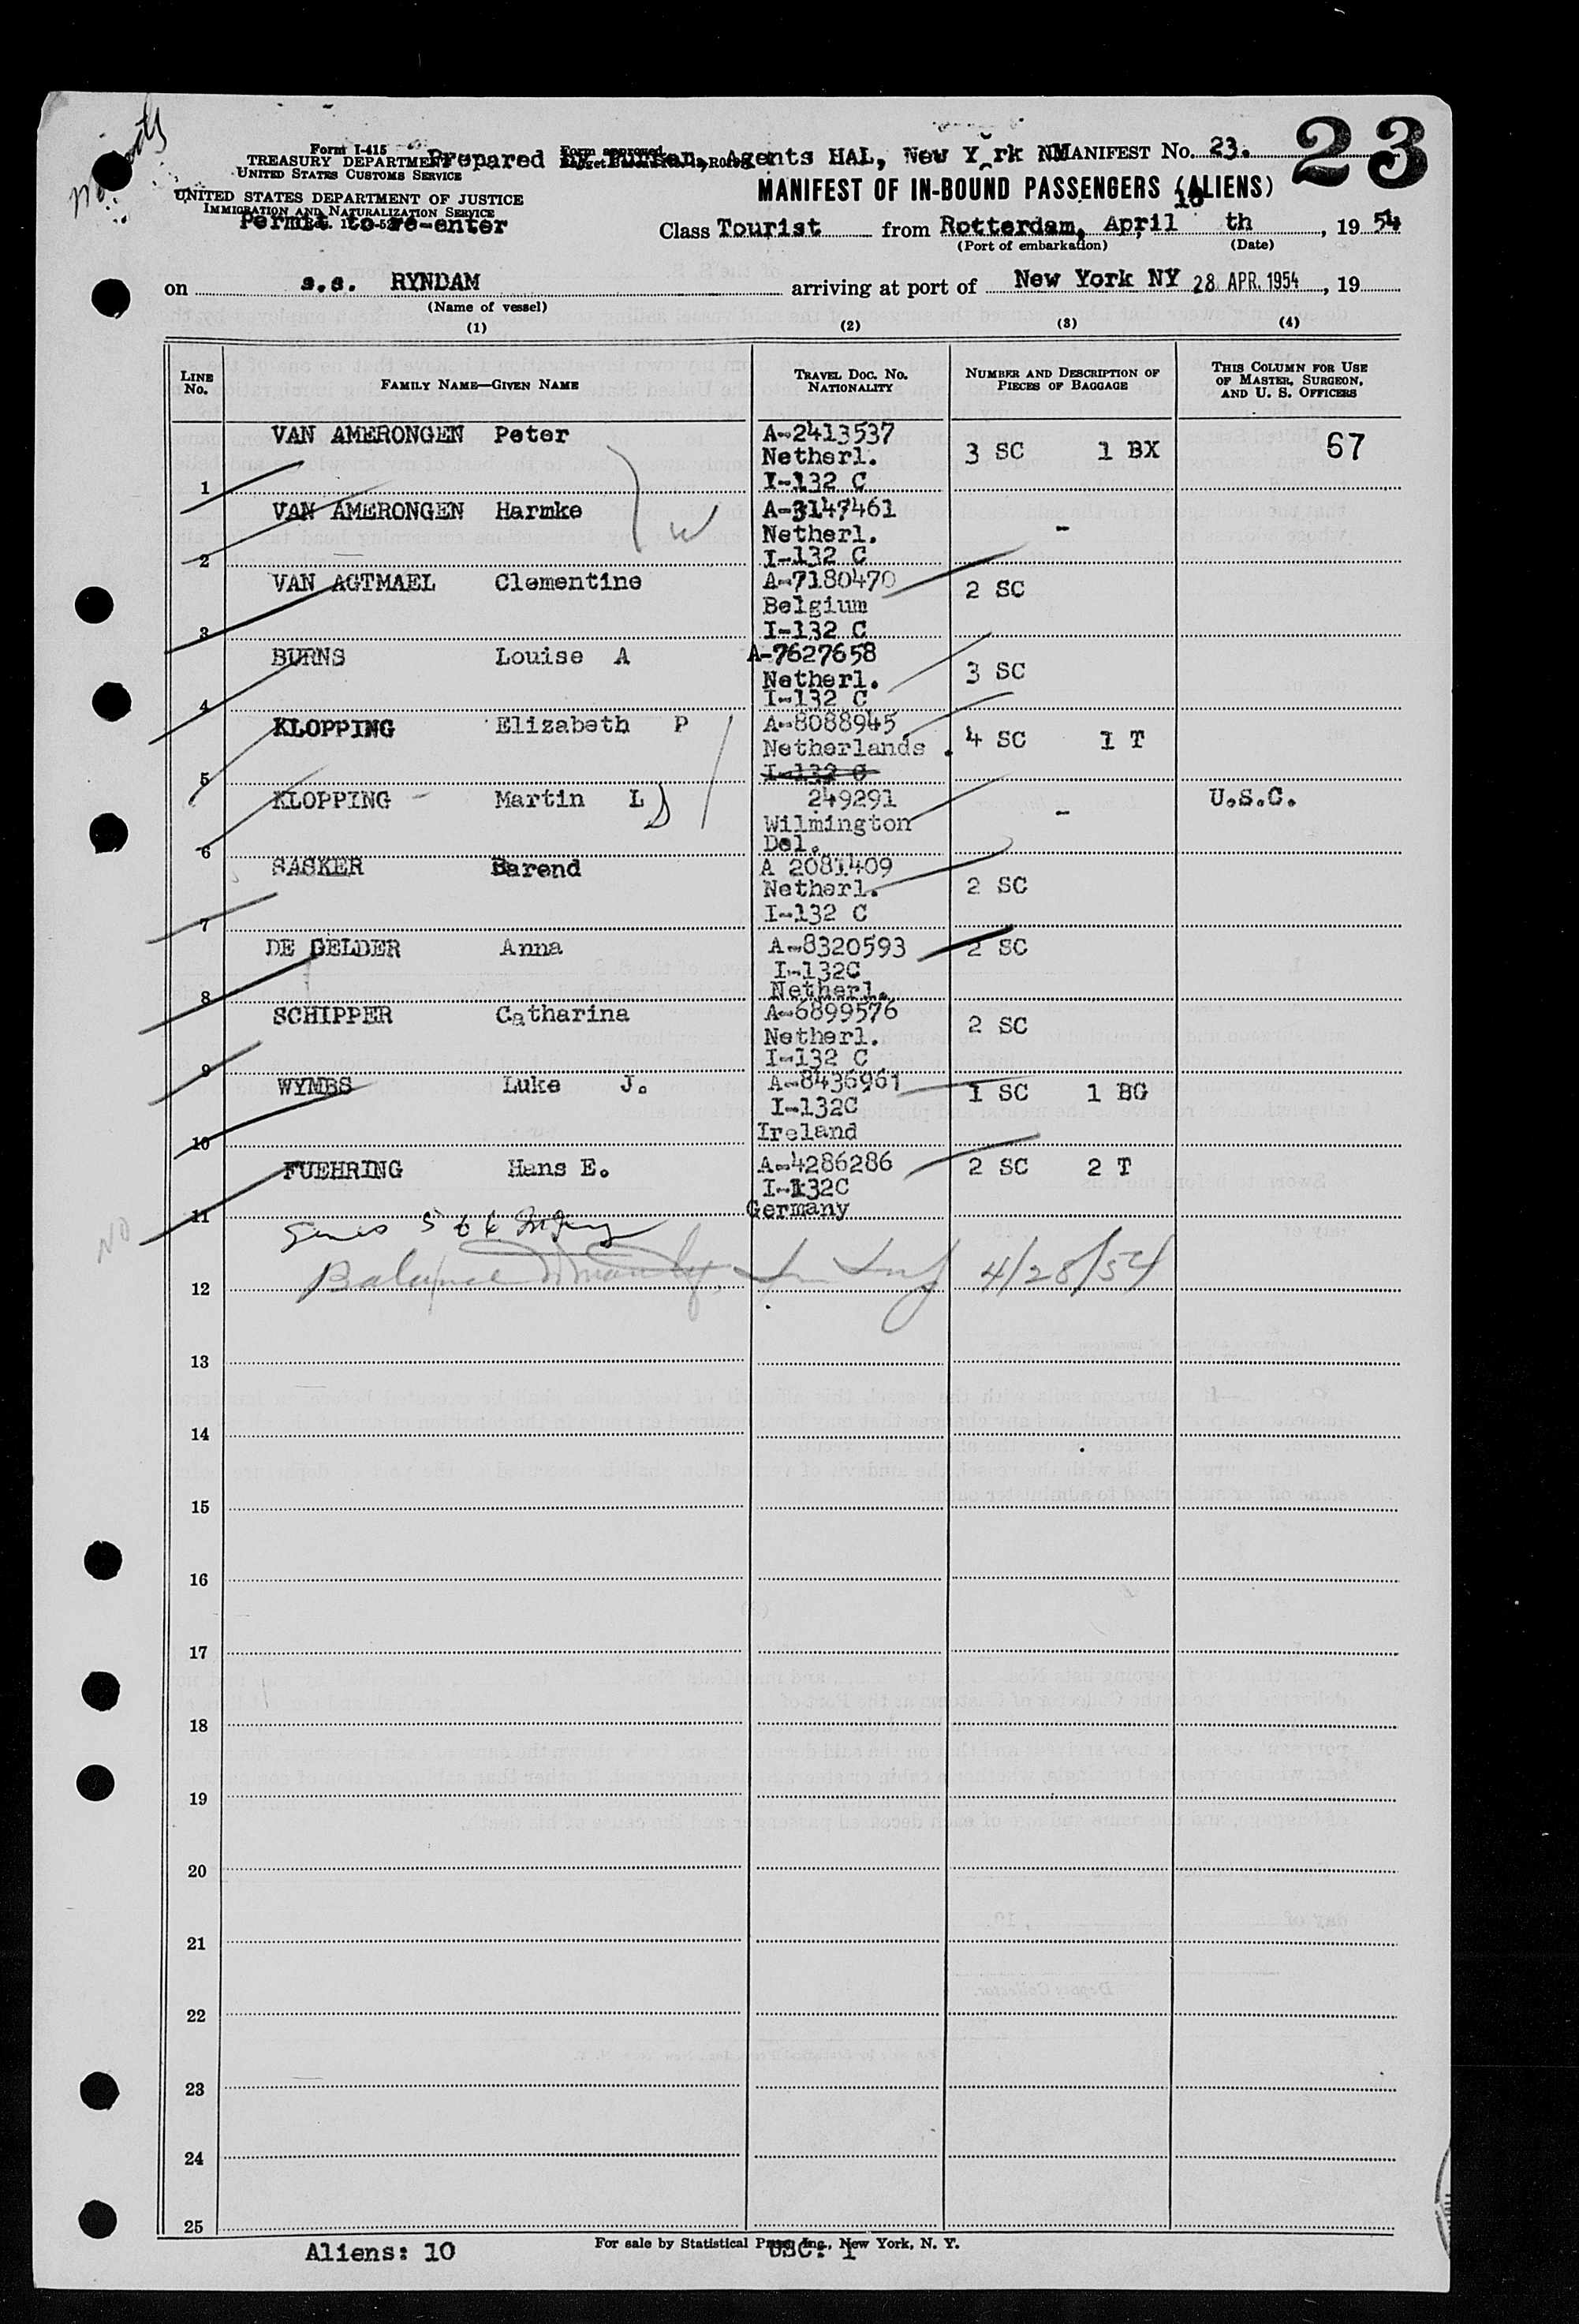 23
Form I-415
TREASURY DEPARTMENT
UNITED STATES CUSTOMS SERVICE
Prepared Agents HAL, New York MANIFEST No. 23.
UNITED STATES DEPARTMENT OF JUSTICE
IMMIGRATION AND NATURALIZATION SERVICE
MANIFEST OF IN-BOUND PASSENGERS (ALIENS)
Permit to re-enter
Class Tourist from Rotterdam, April th, 19 54
(Port of embarkation) (Date)
on s.s. RYNDAM arriving at port of New York NY 28 APR. 1954, 19
(Name of vessel)
(1) (2) (3) (4)
LINE No. FAMILY NAME—GIVEN NAME TRAVEL DOC. NO. NATIONALITY NUMBER AND DESCRIPTION OF PIECES OF BAGGAGE THIS COLUMN FOR USE OF MASTER, SURGEON, AND U. S. OFFICERS
VAN AMERONGEN Peter A-2413537
Netherl. 3 SC 1 BX 67
1 I-132 C
VAN AMERONGEN Harmke A-3147461
Netherl. -
2 I-132 C
VAN AGTMAEL Clementine A-7180470
Belgium 2 SC
3 I-132 C
BURNS Louise A A-7627658
Netherl. 3 SC
4 I-132 C
KLOPPING Elizabeth P A-8088945
Netherlands. 4 SC 1 T
5 I-132 C
KLOPPING Martin L 249291 U.S.C.
Wilmington -
6 Del.
SASKER Barend A 2081409
Netherl. 2 SC
7 I-132 C
DE GELDER Anna A-8320593 2 SC
I-132C
8 Netherl.
SCHIPPER Catharina A-6899576
Netherl. 2 SC
9 I-132 C
WYMBS Luke J. A-8436961 1 SC 1 BG
I-132C
10 Ireland
FUEHRING Hans E. A-4286286 2 SC 2 T
I-132C
11 Germany
5 & 6
Balance 4/28/54
12
13
14
15
16
17
18
19
20
21
22
23
24
25
For sale by Statistical Press, Inc., New York, N. Y.
Aliens: 10 USC: 1